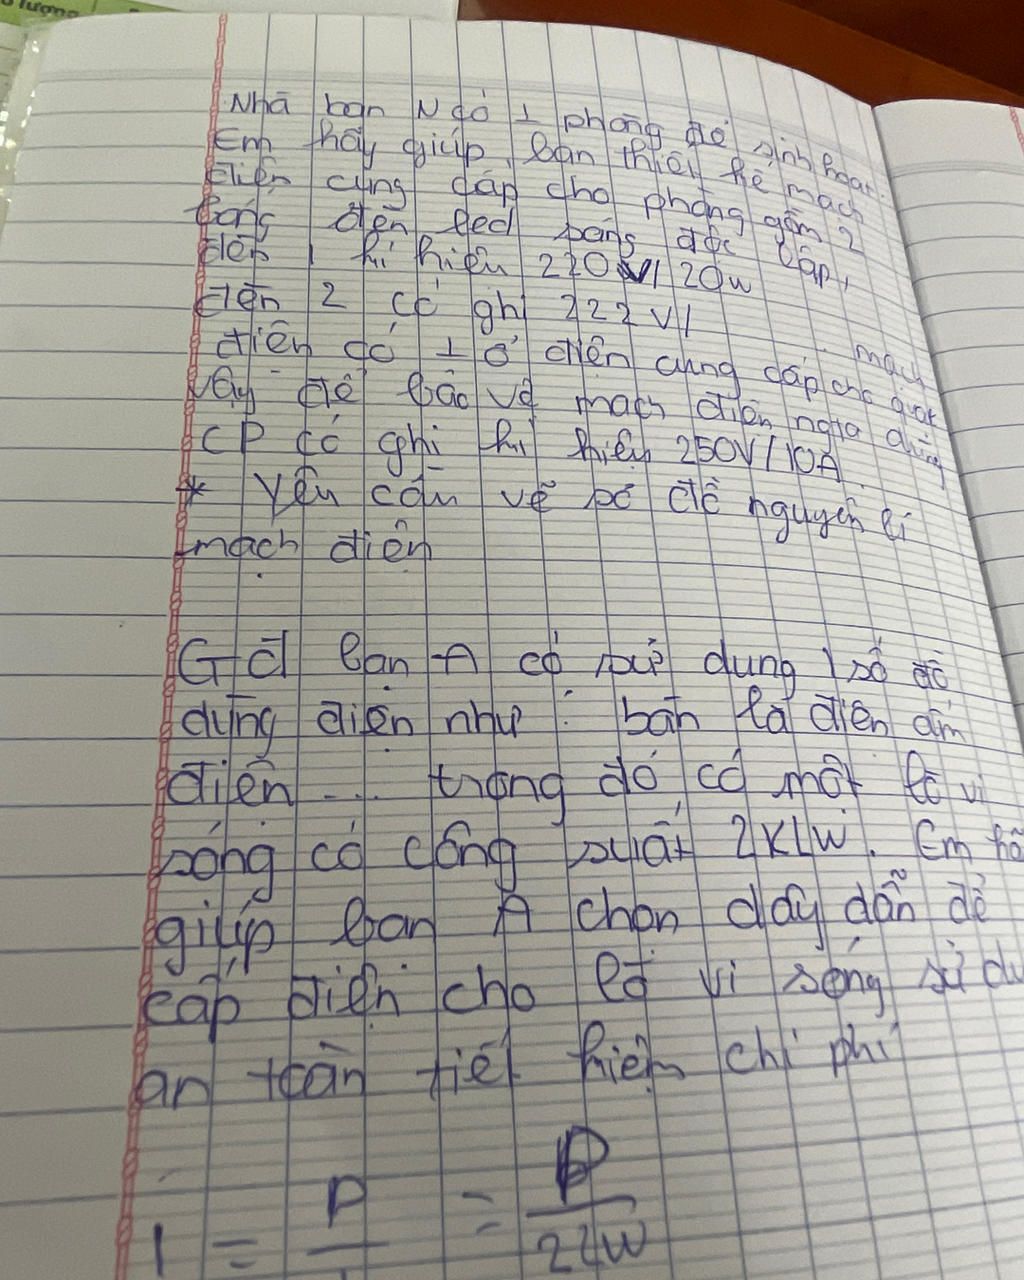 lượng
Nhà bạn N có 1 phòng để sinh hoạt
Em hãy giúp bạn thiết kế mạch
điện cung cấp cho phòng gồm 2
bóng đèn led sáng độc lập,
đèn 1 kí hiệu 220V/20W
đèn 2 có ghi 222V/
mạch
điện có 1 ổ điện cung cấp cho quạt
vậy để bảo vệ mạch điện ngta dùng
CP có ghi kí hiệu 250V/10A
* Yêu cầu vẽ sơ đồ nguyên lí
mạch điện
GĐ bạn A có sử dụng 1 số đồ
dùng điện như : bàn là điện ấm
điện ... trong đó có một lò vi
sóng có công suất 2KW. Em hã
giúp bạn A chọn dây dẫn để
cấp điện cho lò vi sóng sử dụ
an toàn tiết kiệm chi phí
I = P = P
22W